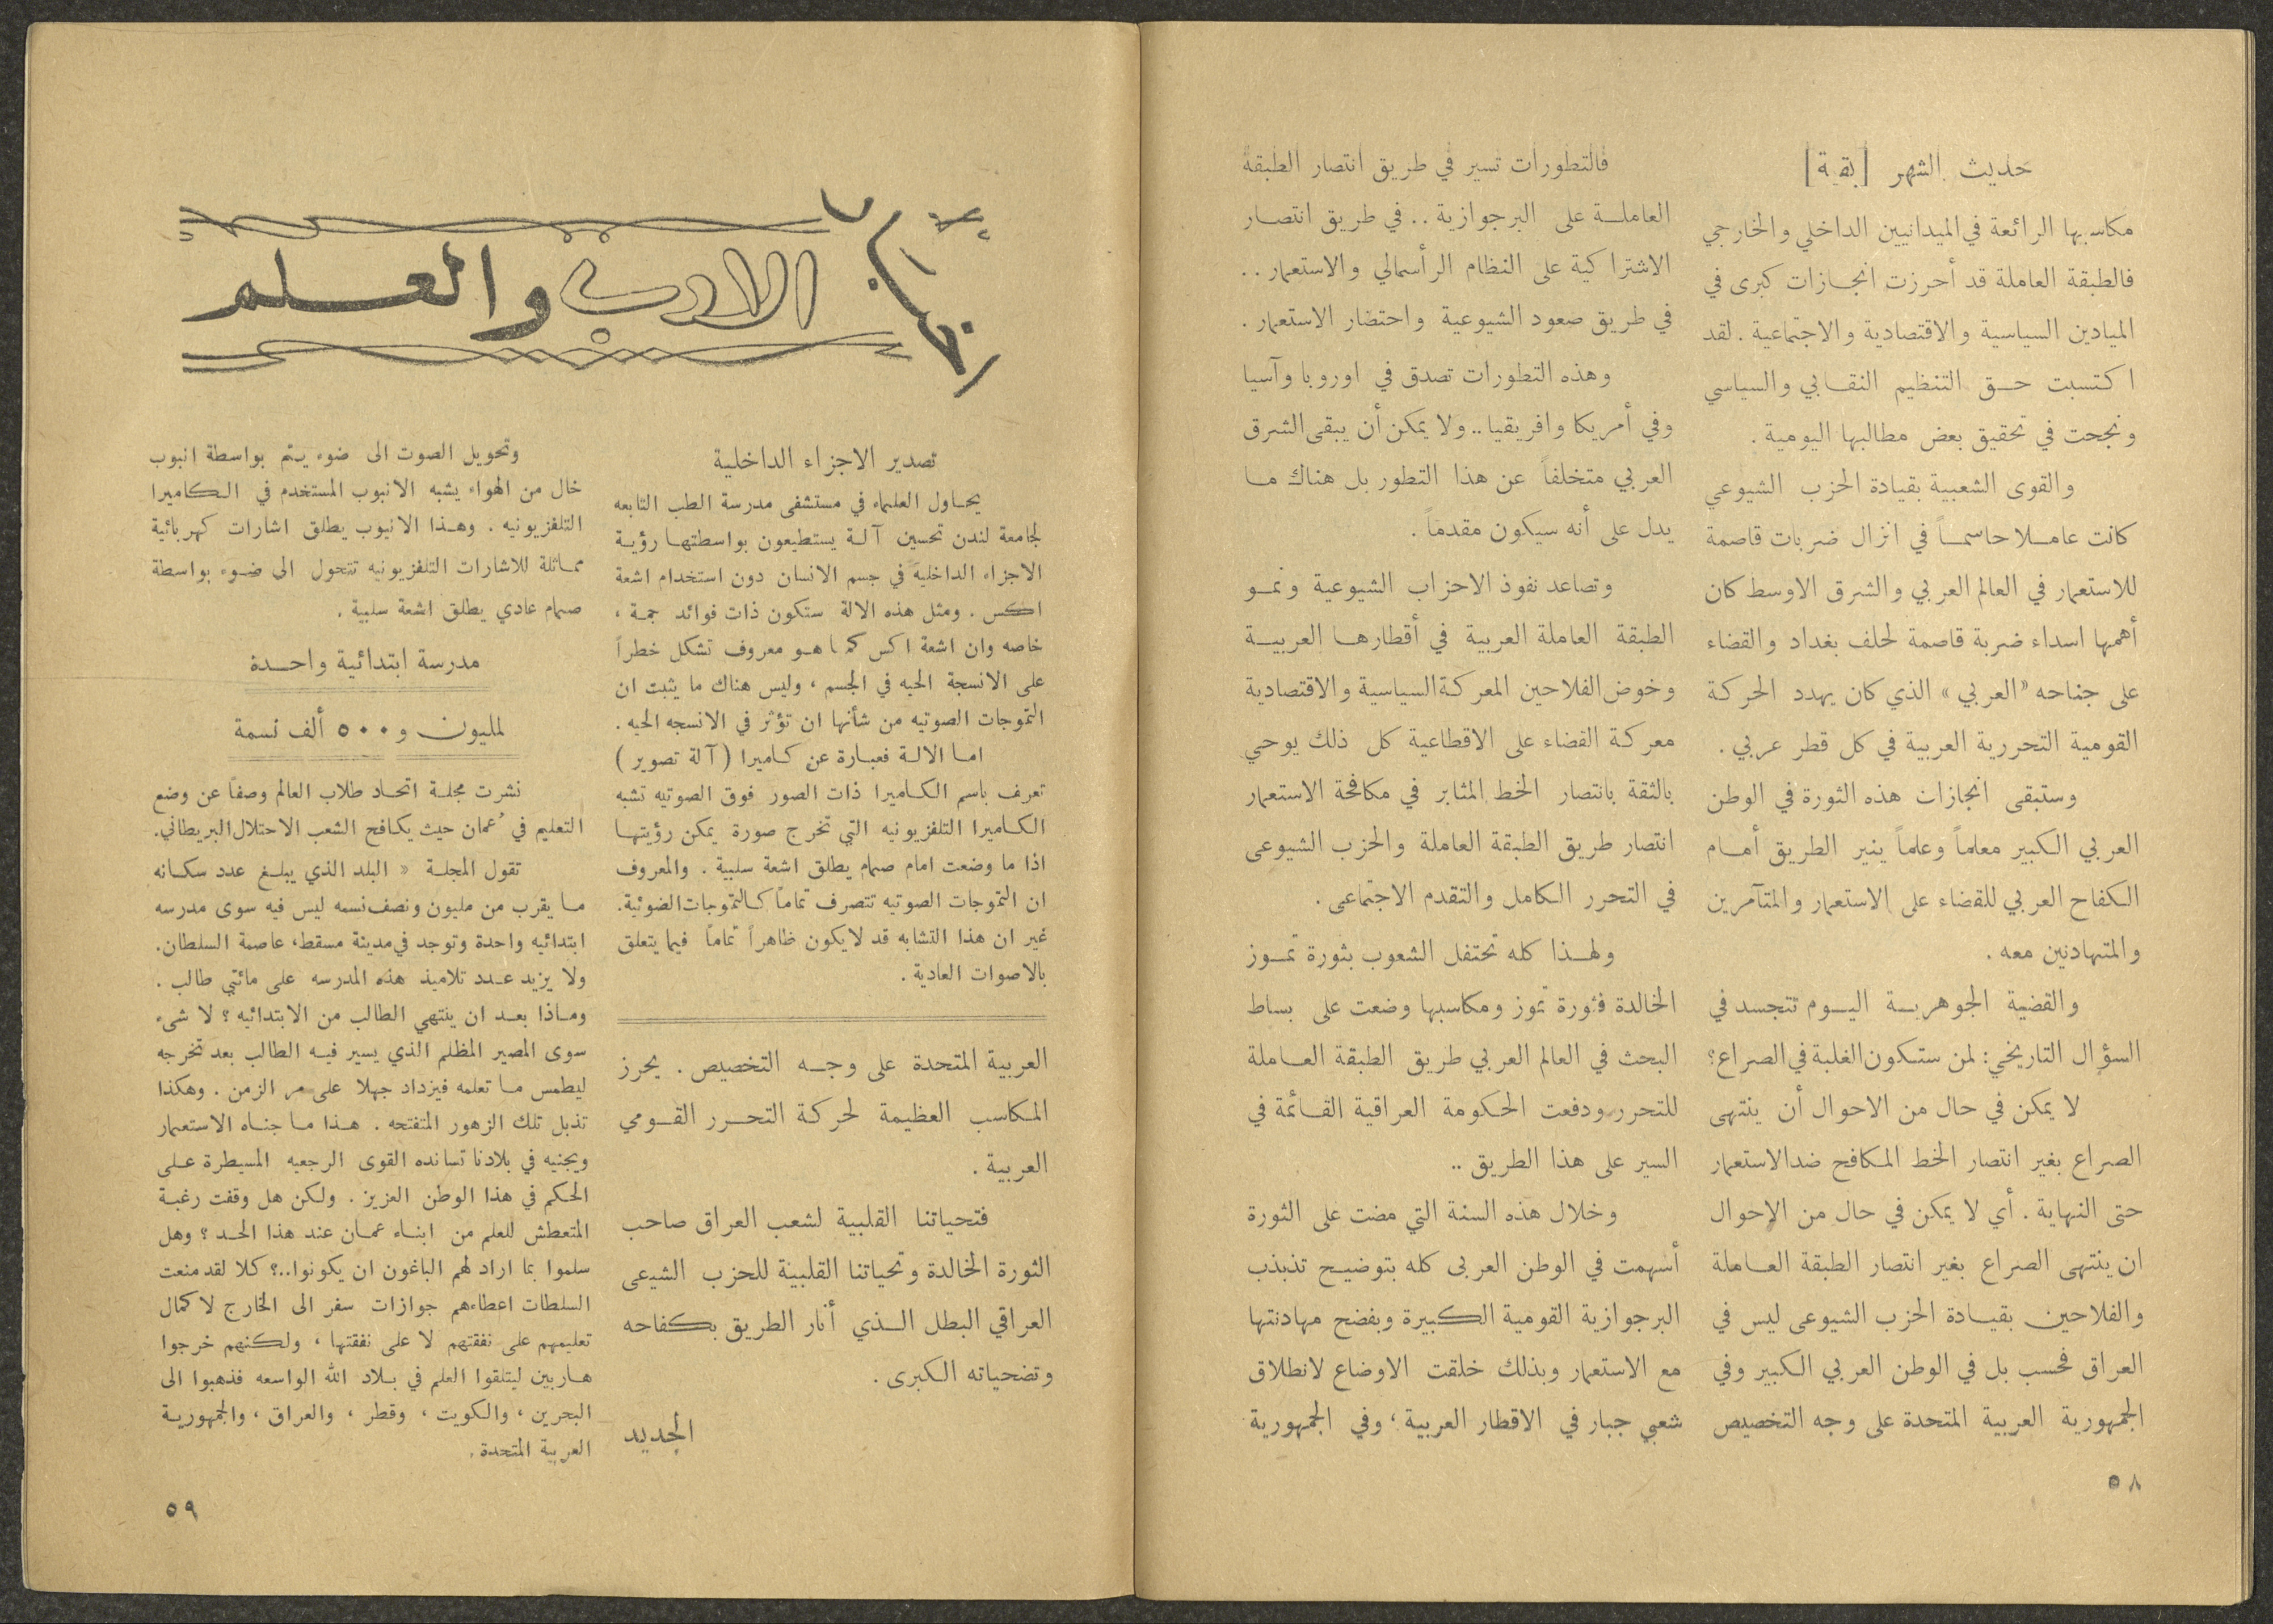 حديث الشهر [بقية]
مكاسبها الرائعة في الميدانيين الداخلي والخارجي
فالطبقة العاملة قد أحرزت انجازات كبرى في
الميادين السياسية والاقتصادية والاجتماعية . لقد
اكتسبت حق التنظيم النقابي والسياسي
ونجحت في تحقيق بعض مطالبها اليومية .
والقوى الشعبية بقيادة الحزب الشيوعي
كانت عاملا حاسماً في انزال ضربات قاصمة
للاستعمار في العالم العربي والشرق الاوسط كان
أهمها اسداء ضربة قاصمة لحلف بغداد والقضاء
على جناحه «العربي» الذي كان يهدد الحركة
القومية التحررية العربية في كل قطر عربي .
وستبقى انجازات هذه الثورة في الوطن
العربي الكبير معلماً وعلماً ينير الطريق أمام
الكفاح العربي للقضاء على الاستعمار والمتآمرين
والمتهادنين معه .
والقضية الجوهرية اليوم تتجسد في
السؤال التاريخي: لمن ستكون الغلبة في الصراع؟
لا يمكن في حال من الاحوال أن ينتهى
الصراع بغير انتصار الخط المكافح ضد الاستعمار
حتى النهاية . أي لا يمكن في حال من الاحوال
ان ينتهى الصراع بغير انتصار الطبقة العاملة
والفلاحين بقيادة الحزب الشيوعى ليس في
العراق فحسب بل في الوطن العربي الكبير وفي
الجمهورية العربية المتحدة على وجه التخصيص
٥٨
فالتطورات تسير في طريق انتصار الطبقة
العاملة على البرجوازية .. في طريق انتصار
الاشتراكية على النظام الرأسمالي والاستعمار ..
في طريق صعود الشيوعية واحتضار الاستعمار .
وهذه التطورات تصدق في اوروبا وآسيا
وفي أمريكا وافريقيا .. ولا يمكن أن يبقى الشرق
العربي متخلفاً عن هذا التطور بل هناك ما
يدل على أنه سيكون مقدماً .
وتصاعد نفوذ الاحزاب الشيوعية ونمو
الطبقة العاملة العربية في أقطارها العربية
وخوض الفلاحين المعركة السياسية والاقتصادية
معركة القضاء على الاقطاعية كل ذلك يوحي
بالثقة بانتصار الخط المثابر في مكافحة الاستعمار
انتصار طريق الطبقة العاملة والحزب الشيوعى
في التحرر الكامل والتقدم الاجتماعى .
ولهذا كله تحتفل الشعوب بثورة تموز
الخالدة فثورة تموز ومكاسبها وضعت على بساط
البحث في العالم العربي طريق الطبقة العاملة
للتحرر ودفعت الحكومة العراقية القائمة في
السير على هذا الطريق ..
وخلال هذه السنة التي مضت على الثورة
أسهمت في الوطن العربى كله بتوضيح تذبذب
البرجوازية القومية الكبيرة وبفضح مهادنتها
مع الاستعمار وبذلك خلقت الاوضاع لانطلاق
شعبي جبار في الاقطار العربية ، وفي الجمهورية
من اخبار
الادب والعلم
تصدير الاجزاء الداخلية
يحاول العلماء في مستشفى مدرسة الطب التابعه
لجامعة لندن تحسين آلة يستطيعون بواسطتها رؤية
الاجزاء الداخليه في جسم الانسان دون استخدام اشعة
اكس . ومثل هذه الالة ستكون ذات فوائد جمة ،
خاصه وان اشعة اكس كما هو معروف تشكل خطراً
على الانسجة الحيه في الجسم ، وليس هناك ما يثبت ان
التموجات الصوتيه من شأنها ان تؤثر في الانسجه الحيه .
اما الالة فعبارة عن كاميرا (آلة تصوير)
تعرف باسم الكاميرا ذات الصور فوق الصوتيه تشبه
الكاميرا التلفزيونيه التي تخرج صورة يمكن رؤيتها
اذا ما وضعت امام صمام يطلق اشعة سلبية . والمعروف
ان التموجات الصوتيه تتصرف تماماً كالتموجات الضوئية.
غير ان هذا التشابه قد لا يكون ظاهراً تماماً فيما يتعلق
بالاصوات العادية .
العربية المتحدة على وجه التخصيص . يحرز
المكاسب العظيمة لحركة التحرر القومي
العربية .
فتحياتنا القلبية لشعب العراق صاحب
الثورة الخالدة وتحياتنا القلبية للحزب الشيعى
العراقي البطل الذي أنار الطريق بكفاحه
وتضحياته الكبرى .
الجديد
وتحويل الصوت الى ضوء يتم بواسطة انبوب
خال من الهواء يشبه الانبوب المستخدم في الكاميرا
التلفزيونيه . وهذا الانبوب يطلق اشارات كهربائية
مماثلة للاشارات التلفزيونيه تتحول الى ضوء بواسطة
صمام عادي يطلق اشعة سلبية .
مدرسة ابتدائية واحدة
لمليون و ٥٠٠ ألف نسمة
نشرت مجلة اتحاد طلاب العالم وصفاً عن وضع
التعليم في عُمان حيث يكافح الشعب الاحتلال البريطاني.
تقول المجلة « البلد الذي يبلغ عدد سكانه
ما يقرب من مليون ونصف نسمه ليس فيه سوى مدرسه
ابتدائيه واحدة وتوجد في مدينة مسقط، عاصمة السلطان.
ولا يزيد عدد تلاميذ هذه المدرسه على مائتي طالب .
وماذا بعد ان ينتهي الطالب من الابتدائيه ؟ لا شىء
سوى المصير المظلم الذي يسير فيه الطالب بعد تخرجه
ليطمس ما تعلمه فيزداد جهلا على مر الزمن . وهكذا
تذبل تلك الزهور المتفتحه . هذا ما جناه الاستعمار
ويجنيه في بلادنا تسانده القوى الرجعيه المسيطرة على
الحكم في هذا الوطن العزيز . ولكن هل وقفت رغبة
المتعطش للعلم من ابناء عمان عند هذا الحد ؟ وهل
سلموا بما اراد لهم الباغون ان يكونوا..؟ كلا لقد منعت
السلطات اعطاءهم جوازات سفر الى الخارج لاكمال
تعليمهم على نفقتهم لا على نفقتها ، ولكنهم خرجوا
هاربين ليتلقوا العلم في بلاد الله الواسعه فذهبوا الى
البحرين ، والكويت ، وقطر ، والعراق ، والجمهورية
العربية المتحدة .
٥٩